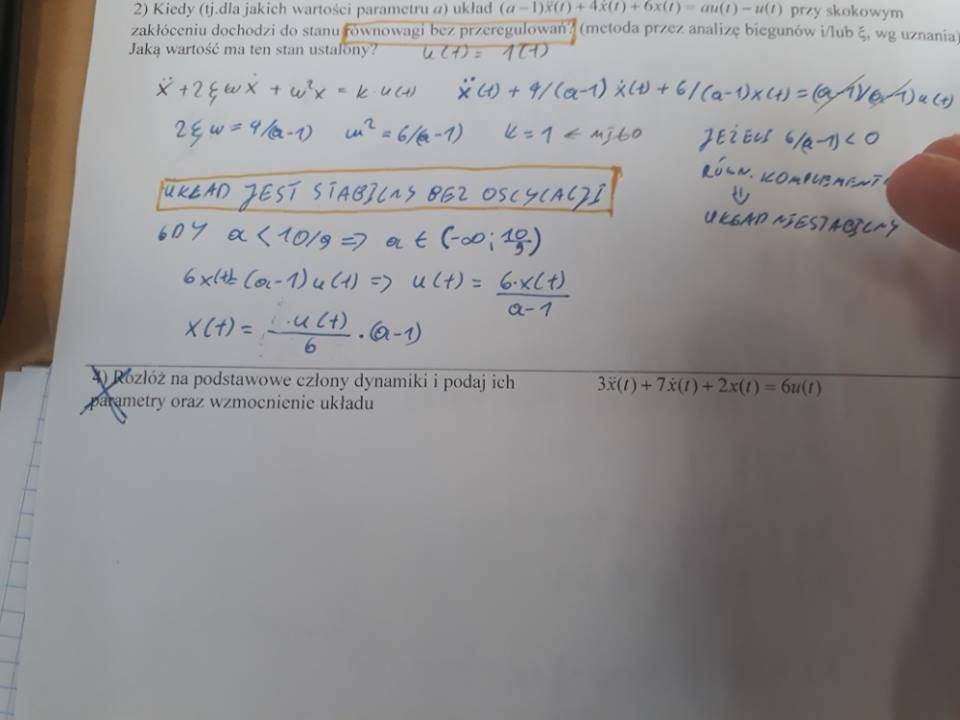 2) Kiedy (tj.dla jakich wartości parametru a) układ (a − 1)ẍ(t) + 4ẋ(t) + 6x(t) = au(t) − u(t) przy skokowym
zakłóceniu dochodzi do stanu równowagi bez przeregulowań? (metoda przez analizę biegunów i/lub ξ, wg uznania)
Jaką wartość ma ten stan ustalony? u(t) = 1(t)
ẍ + 2ξωẋ + ω²x = k·u(t)
ẍ(t) + 4/(a-1) ẋ(t) + 6/(a-1)x(t) = (a-1)/(a-1)u(t)
2ξω = 4/(a-1) ω² = 6/(a-1) k = 1 <
JEŻELI 6/(a-1) < 0
RÓWN.
⇓
UKŁAD NIESTABILNY
UKŁAD JEST STABILNY BEZ OSCYLACJI
GDY a < 10/9 => a ∈ (-∞; 10/9)
6x(t) = (a-1)u(t) => u(t) = 6·x(t)/a-1
x(t) = u(t)/6 · (a-1)
4) Rozłóż na podstawowe człony dynamiki i podaj ich 3ẍ(t) + 7ẋ(t) + 2x(t) = 6u(t)
parametry oraz wzmocnienie układu